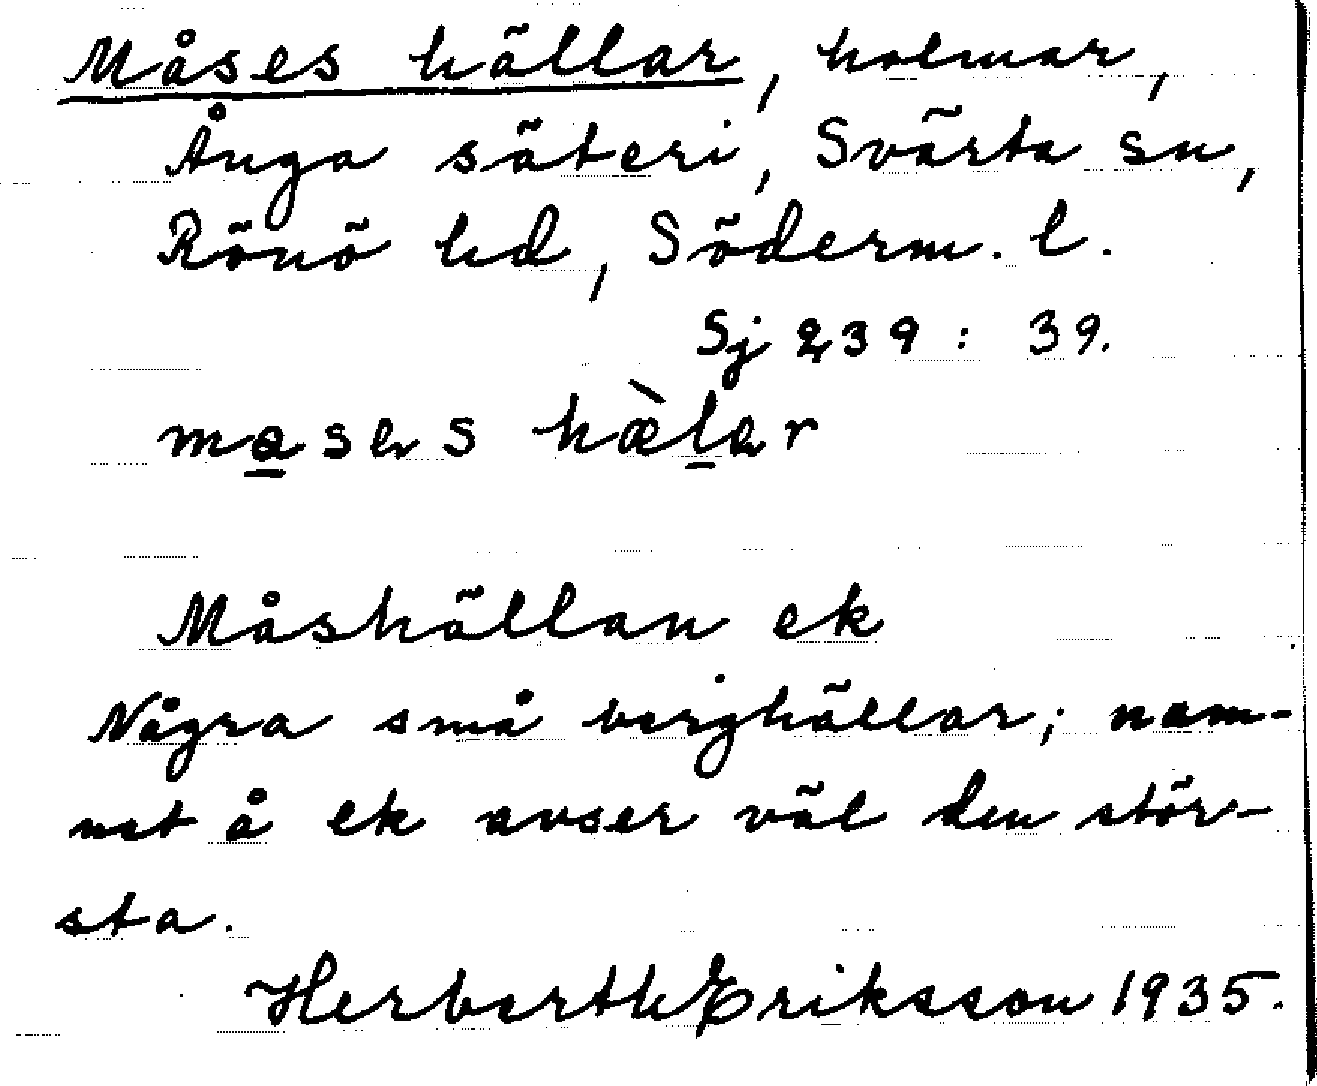 Måses hällar, holmar,
Ånga säteri, Svärta sn,
Rönö hd, Söderm. l.
Sj 239 : 39.
masers hæ̀lar
Måshällan ek
Några små berghällar; nam-
net å ek avser väl den stör-
sta.
Herberth Eriksson 1935.